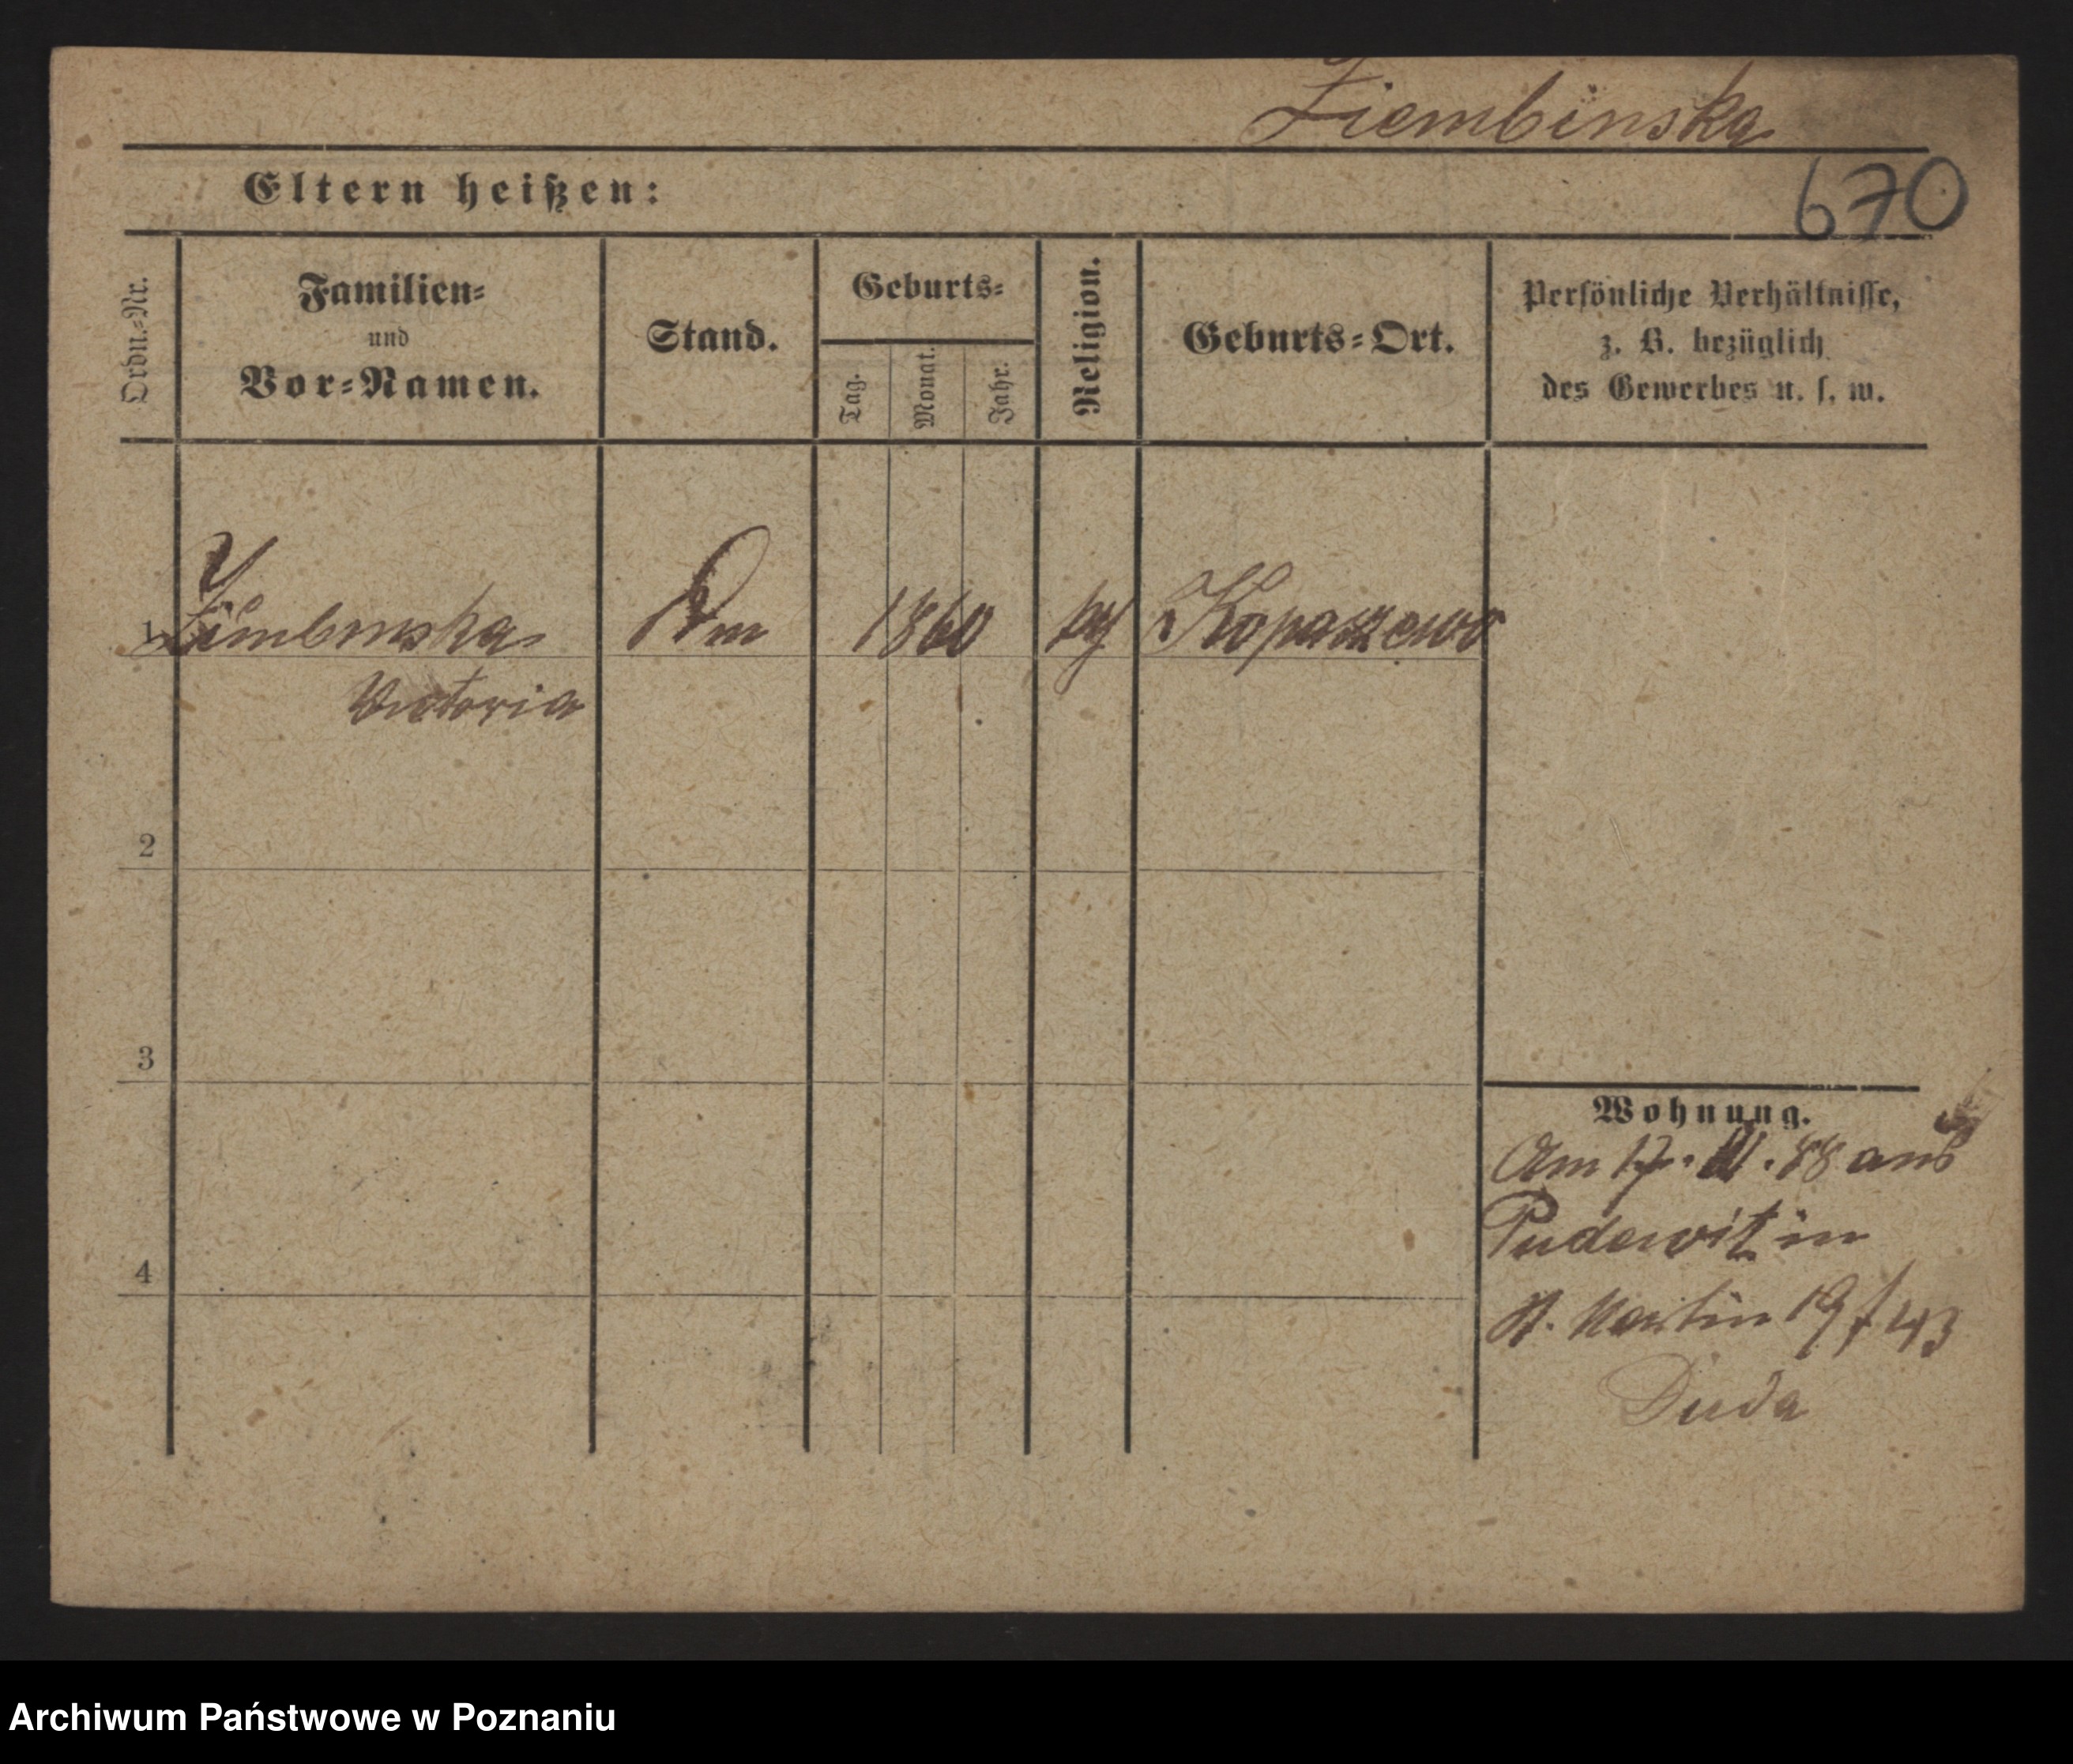 Ziembinska
670
Eltern heißen:
Ordn.-Nr.
Familien-
und
Vor-Namen.
Stand.
Geburts-
Tag.
Monat.
Jahr.
Religion.
Geburts-Ort.
Persönliche Verhältnisse,
z. B. bezüglich
des Gewerbes u. s. w.
1 Zimbinska 1860 Kopaszewo
Victoria
2
3
4
Wohnung.
Am 17. . 88 aus
Pudewitz in
St. Martin 19 / 43
Duda
Archiwum Państwowe w Poznaniu